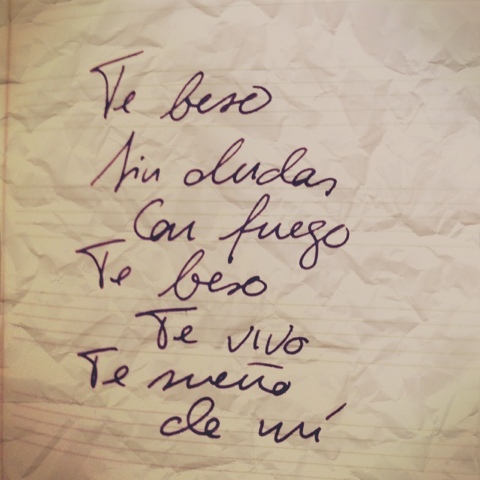 Te beso
sin dudas
Con fuego
Te beso
Te vivo
Te sueño
de mí